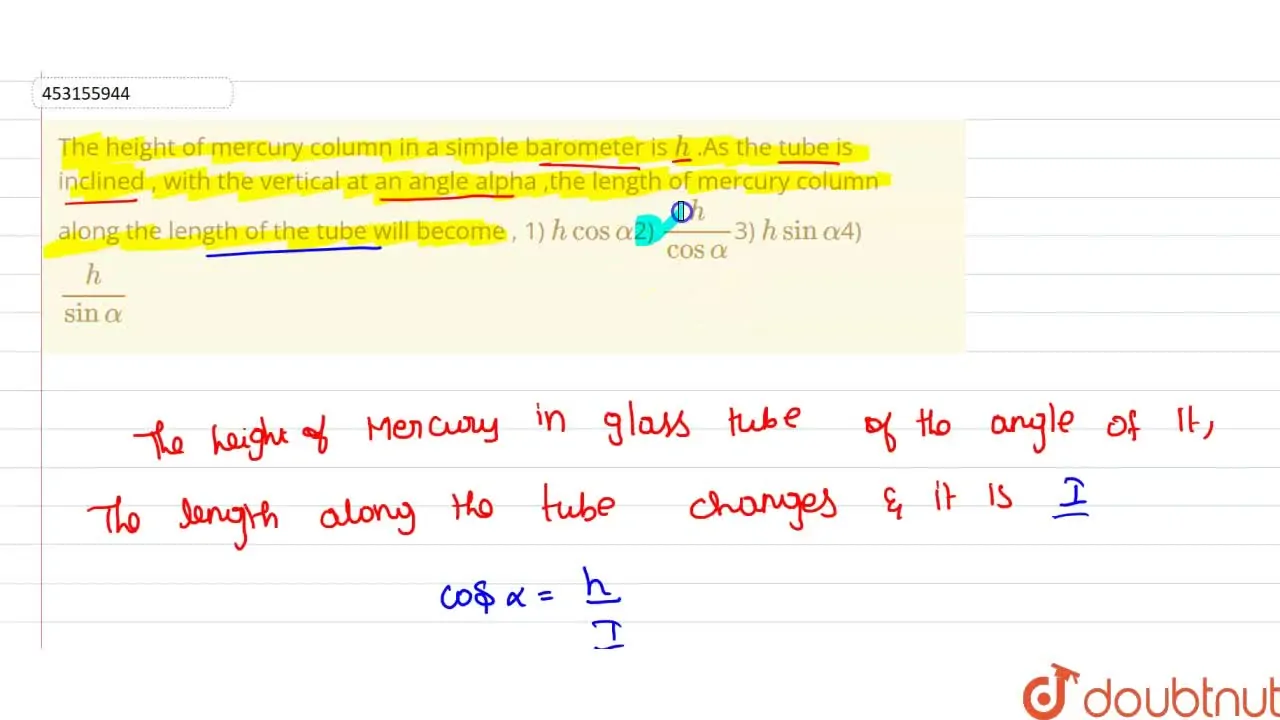 453155944
The height of mercury column in a simple barometer is h .As the tube is
inclined , with the vertical at an angle alpha ,the length of mercury column
along the length of the tube will become , 1) h cos α2) h/cos α 3) h sin α4)
h/sin α
The height of Mercury in glass tube of the angle of It,
The length along the tube changes & it is I
cos α = h/I
doubtnut